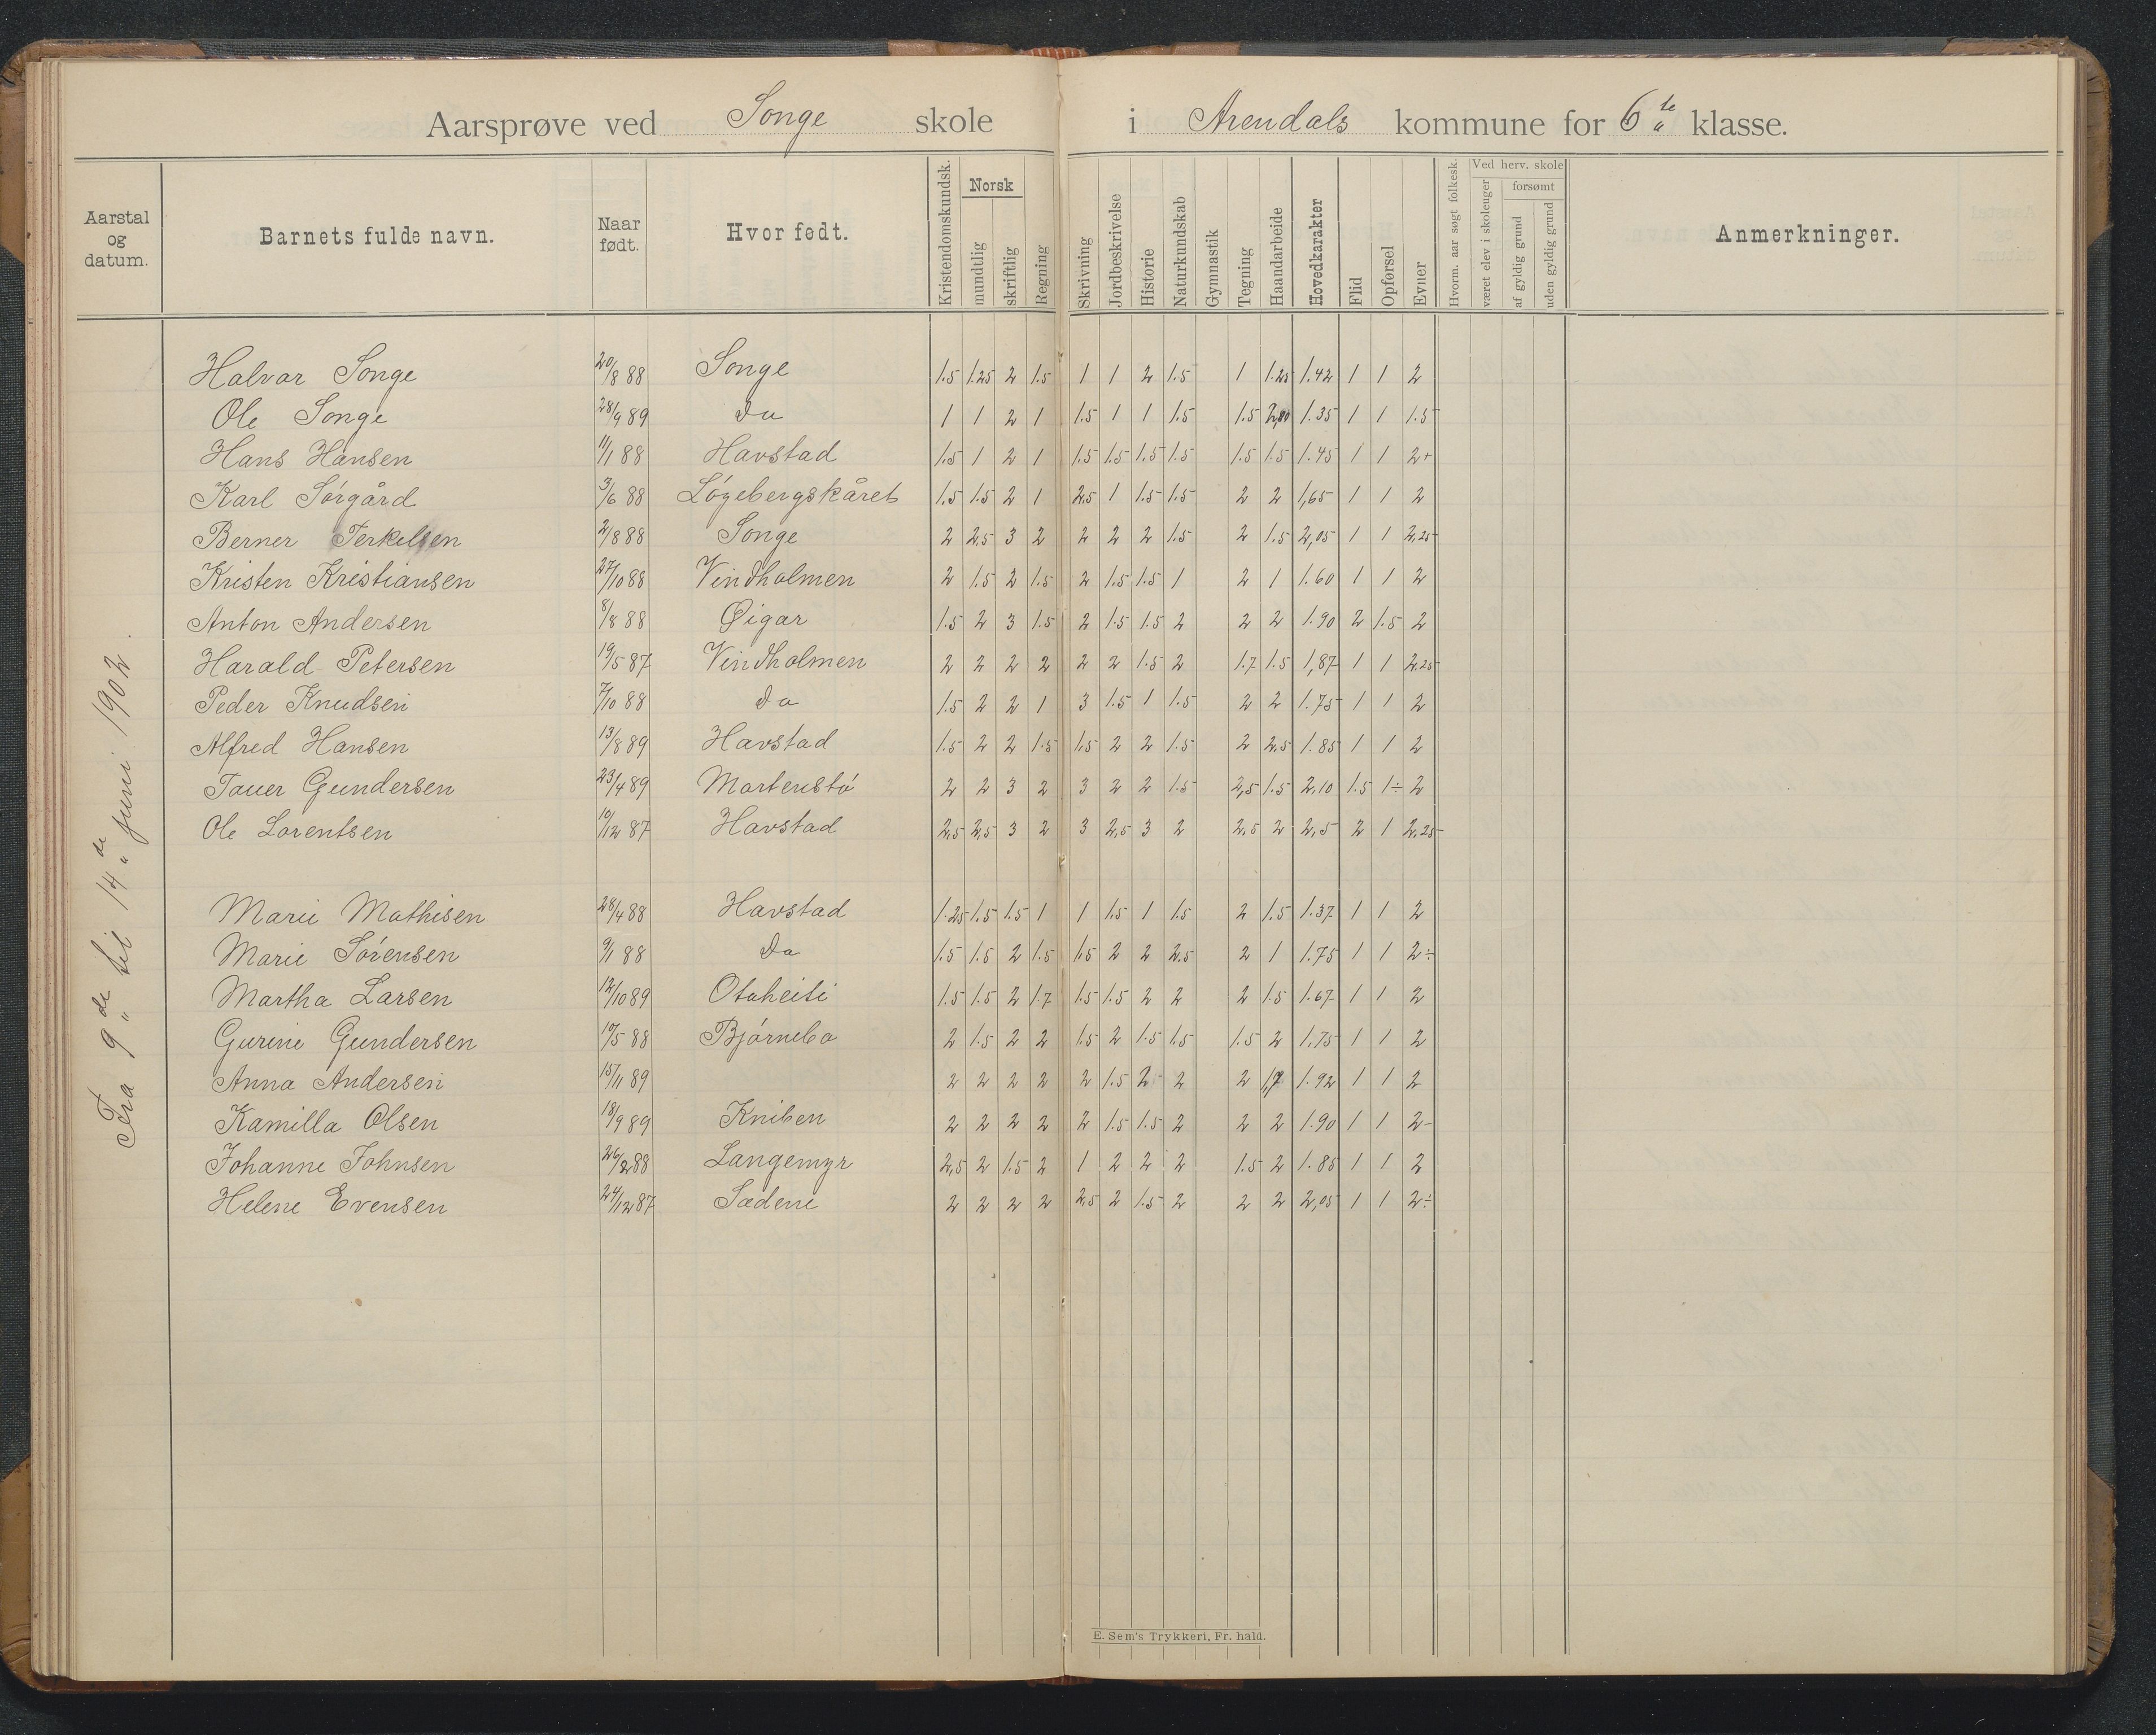 Aarsprøve ved Songe skole i Arendals kommune for 6te klasse.
Aarstal og datum.
Barnets fulde navn.
Naar født.
Hvor født.
Kristendomskundsk.
Norsk
mundtlig
skriftlig
Regning
Skrivning
Jordbeskrivelse
Historie
Naturkundskab
Gymnastik
Tegning
Haandarbeide
Hovedkarakter
Flid
Opførsel
Evner
Hvorm. aar søgt folkesk.
Ved herv. skole
været elev i skoleuger
forsømt
af gyldig grund
uden gyldig grund
Anmerkninger.
Fra 9de til 14de juni 1902.
Halvar Songe 20/8 88 Songe 1.5 1.25 2 1.5 1 1 2 1.5 1 1.25 1.42 1 1 2
Ole Songe 28/9 89 Do 1 1 2 1 1.5 1 1 1.5 1.5 1.35 1 1 1.5
Hans Hansen 11/1 88 Havstad 1.5 1 2 1 1.5 1.5 1.5 1.5 1.5 1.5 1.45 1 1 2+
Karl Sørgård 3/6 88 Løgebergskåret 1.5 1.5 2 1 2.5 1 1.5 1.5 2 2 1,65 1 1 2
Berner Terkelsen 2/8 88 Songe 2 2.5 3 2 2 2 2 1.5 2 1.5 2,05 1 1 2.25
Kristen Kristiansen 27/10 88 Vindholmen 2 1.5 2 1.5 2 1.5 1.5 1 2 1 1.60 1 1 2
Anton Andersen 8/8 88 Øigar 1.5 2 3 1.5 2 1.5 1.5 2 2 2 1.90 2 1.5 2
Harald Petersen 19/5 87 Vindholmen 2 2 2 2 2 2 1.5 2 1.7 1.5 1,87 1 1 2.25
Peder Knudsen 7/10 88 Do 1.5 2 2 1 3 1.5 1 1.5 2 2 1.75 1 1 2
Alfred Hansen 13/8 89 Havstad 1.5 2 2 1.5 1.5 2 2 1.5 2 2.5 1.85 1 1 2
Tauer Gundersen 23/4 89 Mortenstø 2 2 3 2 3 2 2 1.5 2,5 1.5 2.10 1.5 1÷ 2
Ole Lorentsen 10/12 87 Havstad 2.5 2.5 3 2 3 2.5 3 2 2.5 2 2.5 2 1 2.25
Marie Mathisen 28/4 88 Havstad 1.25 1.5 1.5 1 1 1.5 1 1.5 2 1.5 1.37 1 1 2
Marie Sørensen 9/1 88 Do 1.5 1.5 2 1.5 1.5 2 2 2.5 2 1 1.75 1 1 2÷
Martha Larsen 12/10 89 Otaheiti 1.5 1.5 2 1.7 1.5 1.5 2 2 2 1.5 1.67 1 1 2
Gurine Gundersen 10/5 88 Bjørnebo 2 1.5 2 2 1.5 2 1.5 1.5 1.5 2 1.75 1 1 2
Anna Andersen 15/11 89 2 2 2 2 2 1.5 2 2 2 1,7 1.92 1 1 2
Kamilla Olsen 18/9 89 Kniben 2 2 2 2 2 1.5 1.5 2 2 2 1.90 1 1 2-
Johanne Johnsen 26/2 88 Langemyr 2,5 2 1.5 2 1 2 2 2 1.5 2 1.85 1 1 2
Helene Evensen 24/12 87 Sædene 2 2 2 2 2.5 2 1.5 2 2 2 2,05 1 1 2÷
E. Sem's Trykkeri, Fr. hald.